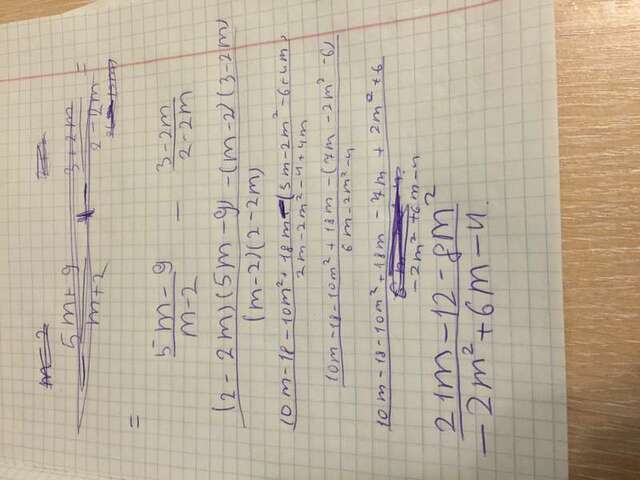 5m+9 / m+2 - 3+2m / 2-2m =
= 5m-9 / m-2 - 3-2m / 2-2m
(2-2m)(5m-9)-(m-2)(3-2m) / (m-2)(2-2m)
10m-18-10m²+18m-(3m-2m²-6+4m) / 2m-2m²-4+4m
10m-18-10m²+18m-(7m-2m²-6) / 6m-2m²-4
10m-18-10m²+18m-7m+2m²+6 / -2m²+6m-4
21m-12-8m² / -2m²+6m-4